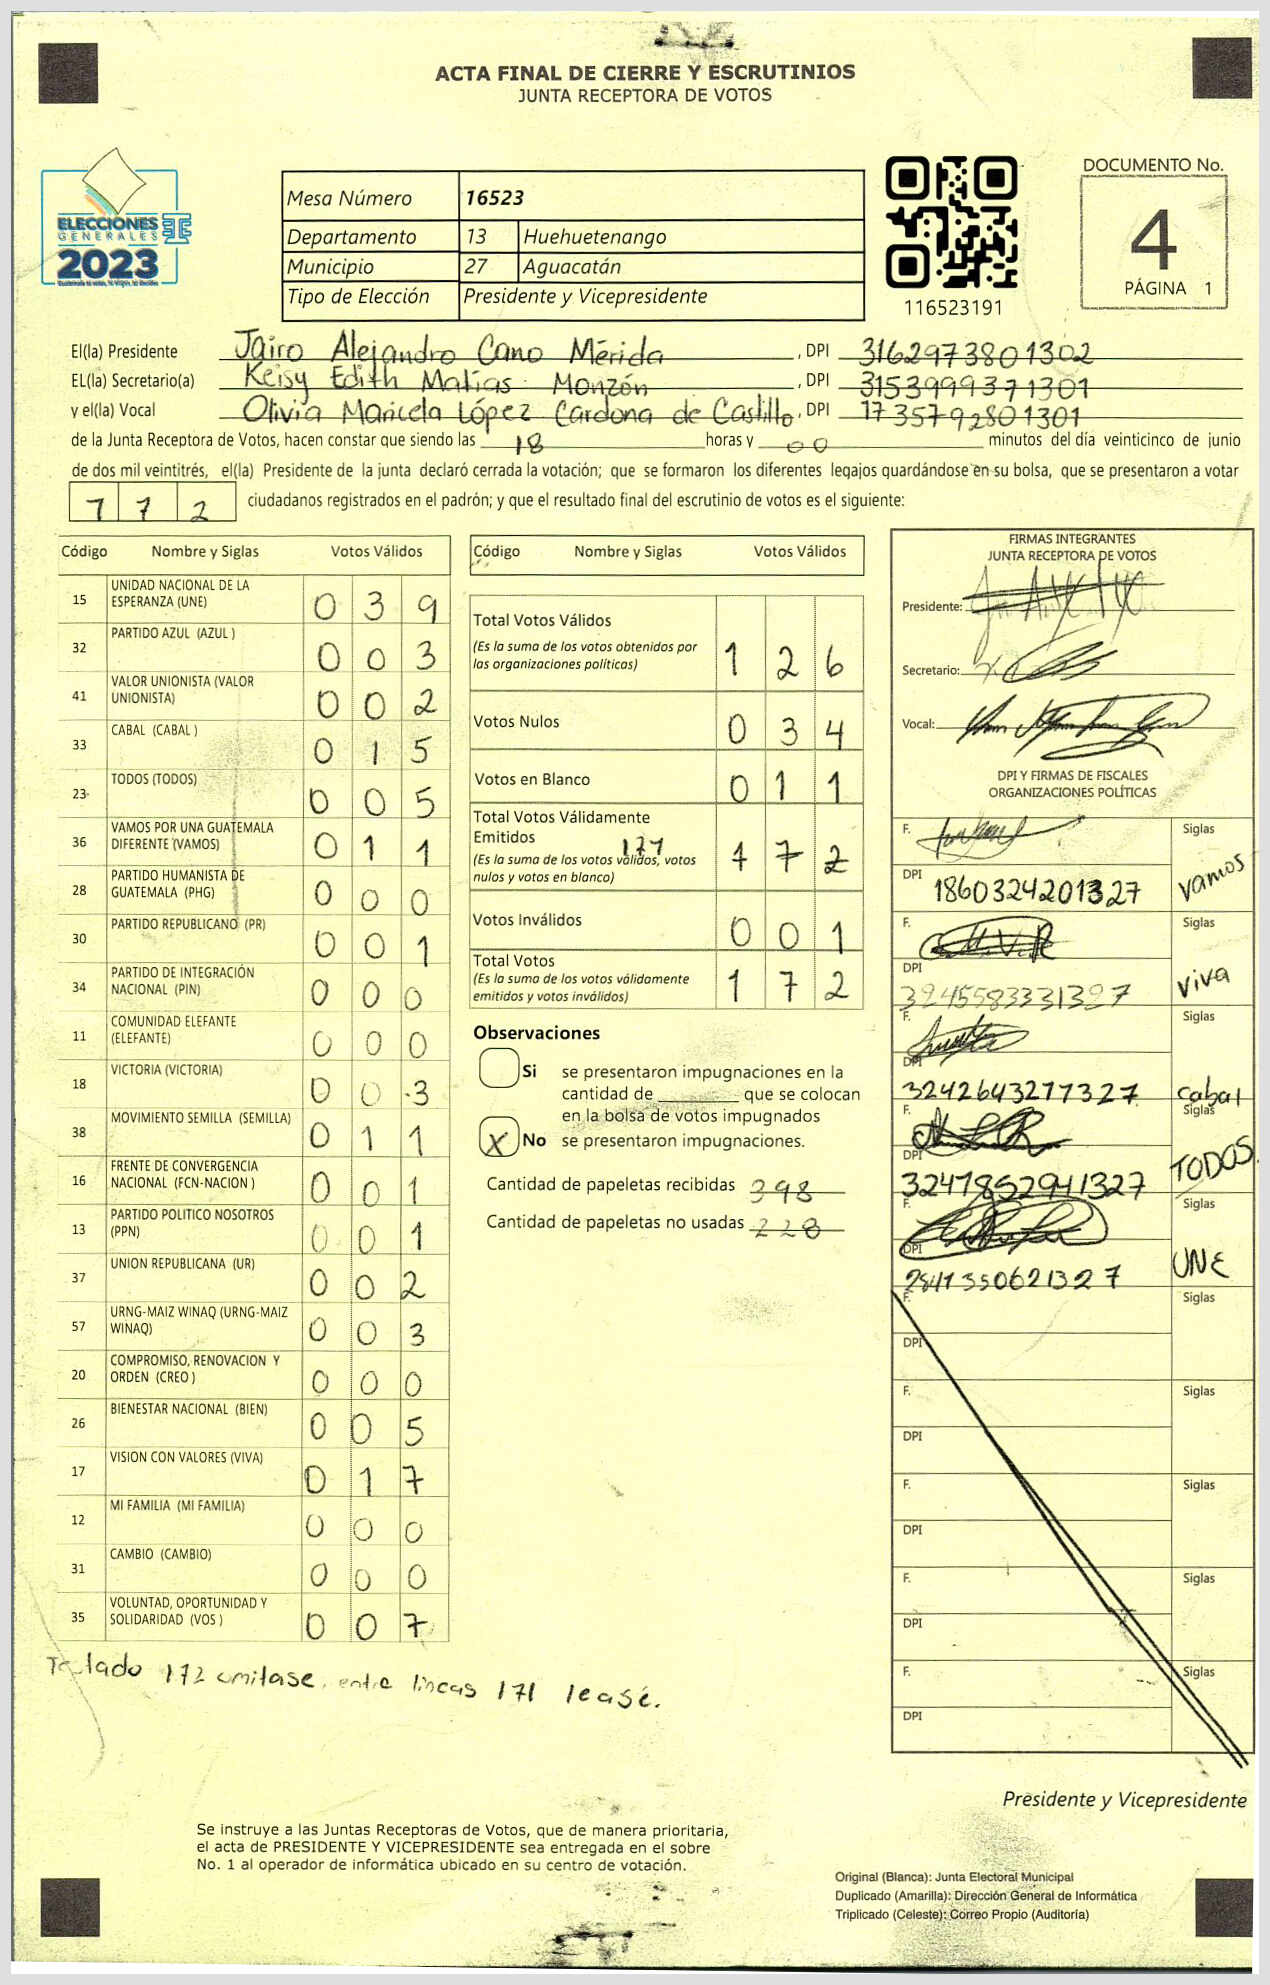 ACTA FINAL DE CIERRE Y ESCRUTINIOS
JUNTA RECEPTORA DE VOTOS
ELECCIONES
GENERALES
2023
Mesa Número 16523
Departamento 13 Huehuetenango
Municipio 27 Aguacatán
Tipo de Elección Presidente y Vicepresidente
116523191
DOCUMENTO No.
4
PÁGINA 1
El(la) Presidente Jairo Alejandro Cano Mérida , DPI 3162973801302
EL(la) Secretario(a) Keisy Edith Matías Monzón , DPI 3153999371301
y el(la) Vocal Olivia Maricela López Cardona de Castillo , DPI 1735792801301
de la Junta Receptora de Votos, hacen constar que siendo las 18 horas y 00 minutos del día veinticinco de junio
de dos mil veintitrés, el(la) Presidente de la junta declaró cerrada la votación; que se formaron los diferentes legajos guardándose en su bolsa, que se presentaron a votar
772 ciudadanos registrados en el padrón; y que el resultado final del escrutinio de votos es el siguiente:
Código Nombre y Siglas Votos Válidos
15 UNIDAD NACIONAL DE LA ESPERANZA (UNE) 0 3 9
32 PARTIDO AZUL (AZUL ) 0 0 3
41 VALOR UNIONISTA (VALOR UNIONISTA) 0 0 2
33 CABAL (CABAL ) 0 1 5
23 TODOS (TODOS) 0 0 5
36 VAMOS POR UNA GUATEMALA DIFERENTE (VAMOS) 0 1 1
28 PARTIDO HUMANISTA DE GUATEMALA (PHG) 0 0 0
30 PARTIDO REPUBLICANO (PR) 0 0 1
34 PARTIDO DE INTEGRACIÓN NACIONAL (PIN) 0 0 0
11 COMUNIDAD ELEFANTE (ELEFANTE) 0 0 0
18 VICTORIA (VICTORIA) 0 0 3
38 MOVIMIENTO SEMILLA (SEMILLA) 0 1 1
16 FRENTE DE CONVERGENCIA NACIONAL (FCN-NACION ) 0 0 1
13 PARTIDO POLITICO NOSOTROS (PPN) 0 0 1
37 UNION REPUBLICANA (UR) 0 0 2
57 URNG-MAIZ WINAQ (URNG-MAIZ WINAQ) 0 0 3
20 COMPROMISO, RENOVACION Y ORDEN (CREO ) 0 0 0
26 BIENESTAR NACIONAL (BIEN) 0 0 5
17 VISION CON VALORES (VIVA) 0 1 7
12 MI FAMILIA (MI FAMILIA) 0 0 0
31 CAMBIO (CAMBIO) 0 0 0
35 VOLUNTAD, OPORTUNIDAD Y SOLIDARIDAD (VOS ) 0 0 7
172 omitase, entre líneas 171 lease.
Código Nombre y Siglas Votos Válidos
Total Votos Válidos
(Es la suma de los votos obtenidos por
las organizaciones políticas) 1 2 6
Votos Nulos 0 3 4
Votos en Blanco 0 1 1
Total Votos Válidamente
Emitidos
(Es la suma de los votos válidos, votos
nulos y votos en blanco) 1 7 2
Votos Inválidos 0 0 1
Total Votos
(Es la suma de los votos válidamente
emitidos y votos inválidos) 1 7 2
Observaciones
Si se presentaron impugnaciones en la
cantidad de ________ que se colocan
en la bolsa de votos impugnados
X No se presentaron impugnaciones.
Cantidad de papeletas recibidas 398
Cantidad de papeletas no usadas
FIRMAS INTEGRANTES
JUNTA RECEPTORA DE VOTOS
Presidente:
Secretario:
Vocal:
DPI Y FIRMAS DE FISCALES
ORGANIZACIONES POLÍTICAS
F. Siglas
DPI 1860324201327 vamos
F. Siglas
DPI 3245583331327 viva
F. Siglas
DPI 3242643277327 cabal
F. Siglas
DPI 3247852941327 TODOS
F. Siglas
DPI 2841350621327 UNE
F. Siglas
DPI
F. Siglas
DPI
F. Siglas
DPI
F. Siglas
DPI
F. Siglas
DPI
Presidente y Vicepresidente
Se instruye a las Juntas Receptoras de Votos, que de manera prioritaria,
el acta de PRESIDENTE Y VICEPRESIDENTE sea entregada en el sobre
No. 1 al operador de informática ubicado en su centro de votación.
Original (Blanca): Junta Electoral Municipal
Duplicado (Amarilla): Dirección General de Informática
Triplicado (Celeste): Correo Propio (Auditoría)